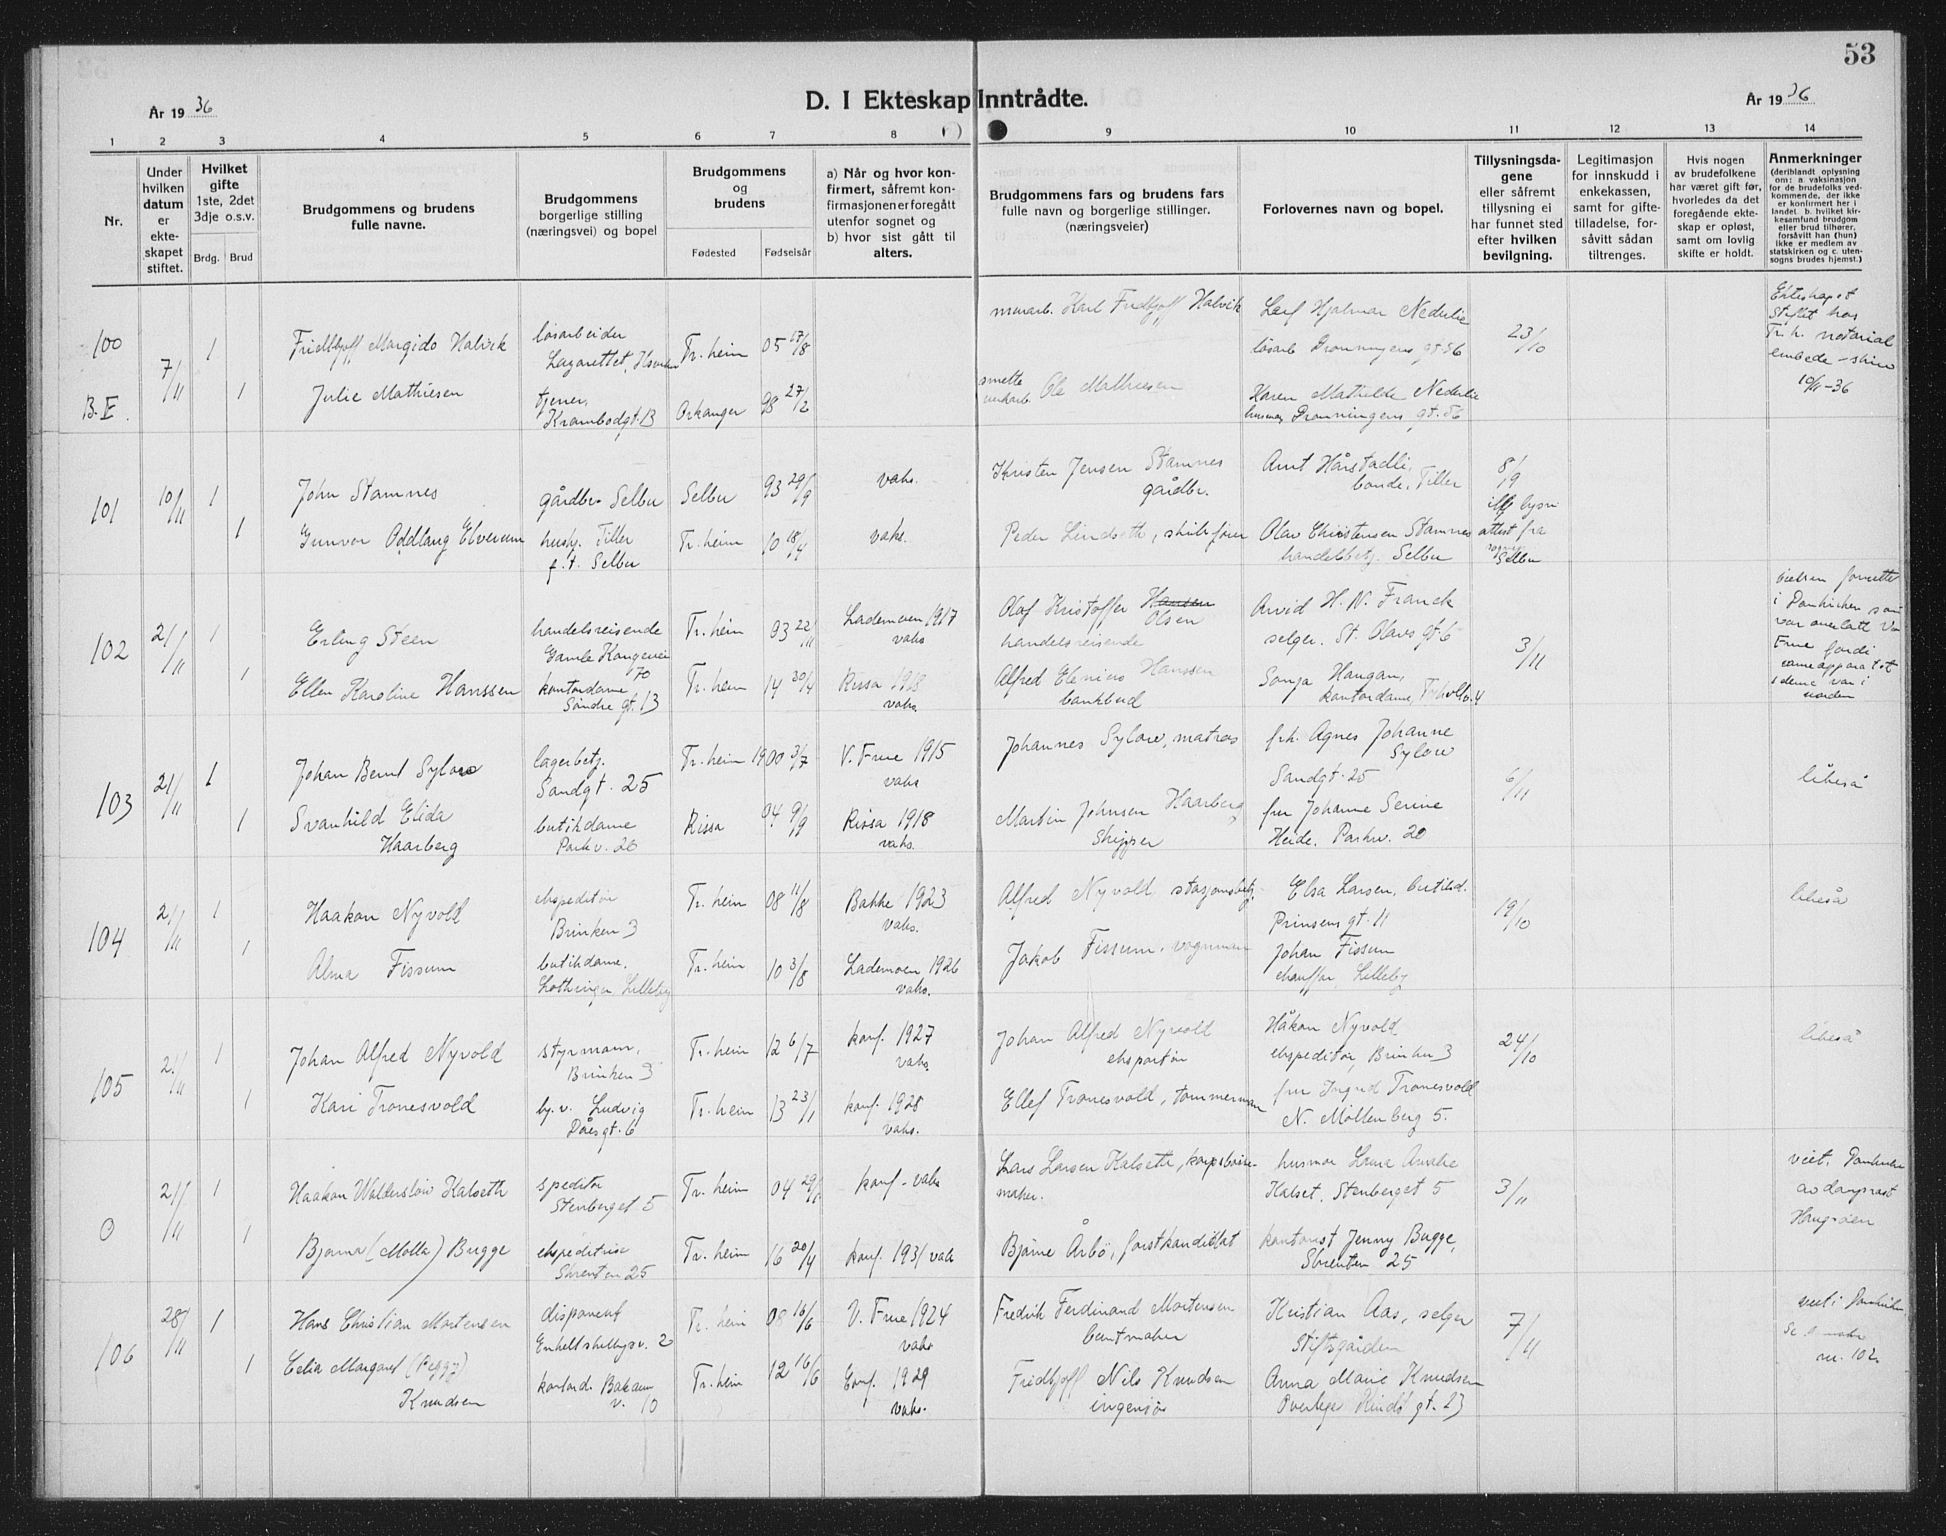 53
D. I Ekteskap Inntrådte.
År 1936
År 1936
1 2 3 4 5 6 7 8 9 10 11 12 13 14
Nr.
Under hvilken datum er ekteskapet stiftet.
Hvilket gifte 1ste, 2det 3dje o.s.v.
Brdg. Brud
Brudgommens og brudens fulle navne.
Brudgommens borgerlige stilling (næringsvei) og bopel
Brudgommens og brudens
Fødested Fødselsår
a) Når og hvor konfirmert, såfremt konfirmasjonen er foregått utenfor sognet og b) hvor sist gått til alters.
Brudgommens fars og brudens fars fulle navn og borgerlige stillinger. (næringsveier)
Forlovernes navn og bopel.
Tillysningsdagene eller såfremt tillysning ei har funnet sted efter hvilken bevilgning.
Legitimasjon for innskudd i enkekassen, samt for giftetilladelse, forsåvitt sådan tiltrenges.
Hvis nogen av brudefolkene har været gift før, hvorledes da det foregående ekteskap er opløst, samt om lovlig skifte er holdt.
Anmerkninger (deriblandt oplysning om: a. vaksinasjon for de brudefolks vedkommende, der ikke er konfirmert her i landet. b. hvilket kirkesamfund brudgom eller brud tilhører, forsåvitt han (hun) ikke er medlem av statskirken og c. utensogns brudes hjemst.)
100 7/11 1 Fridthjoff Margido Halvik løsarbeider Lazarettet, Tr.heim 05 17/8 murarb. Karl Fridthjoff Halvik Leif Hjalmar Nederlie løsarb Dronningens gt. 56 23/10 Ekteskapet stiftet hos Tr.h. notarial embede 10/11-36
B.F. 1 Julie Mathiesen tjener, Krambodgt. 13 Orkanger 98 27/2 Ole Mathiesen Karen Mathilde Nederlie husmor Dronningens gt. 56
101 10/11 1 John Stamnes gårdbr. Selbu Selbu 93 29/9 vaks. Kristen Jensen Stamnes gårdbr. Arnt Hårstadli, bonde, Tiller 8/9
1 Gunvor Oddlaug Elverum hush. Tiller f. t. Selbu Tr.heim 10 18/4 vaks. Peder Lindseth, skibsfører Olav Christensen Stamnes handelsbetj. Selbu attest fra Selbu
102 21/11 1 Erling Steen handelsreisende Gamle Kongevei 70 Tr.heim 93 22/11 Lademoen 1917 vaks Olaf Kristoffer Hansen Olsen handelsreisende Arvid H. N. Franck selger. St. Olavs gt. 6 3/11
1 Ellen Karoline Hanssen kontordame Søndre gt. 13 Tr. heim 14 20/4 Rissa 1918 vaks. Alfred Hanssen bankbud Sonja Haugan, kontordame,
103 21/11 1 Johan Bernt Sylow lagerbetj. Sandgt. 25 Tr. heim 1900 3/7 V. Frue 1915 vaks Johannes Sylow, matros frk. Agnes Johanne Sylow Sandgt. 25 6/11 likeså
1 Svanhild Elida Haarberg butikdame Parkv. 20 Rissa 04 9/9 Rissa 1918 vaks. Martin Johnsen Haarberg, Skipper fru Johanne Serine Heide. Parkv. 20
104 21/11 1 Haakon Nyvold ekspeditør Brinken 3 Tr. heim 08 11/8 Bakke 1923 vaks. Alfred Nyvold stasjonsbetj. Elsa Larsen, butikd. Prinsens gt. 11 19/10 likeså
1 Alma Fissum butikdame, Lothringen, Lilleby Tr. heim 10 3/8 Lademoen 1926 vaks. Jakob Fissum. vognman Johan Fissum chauffør, Lilleby
105 21/11 1 Johan Alfred Nyvold styrmann, Brinken 3 Tr. heim 12 6/7 konf. 1927 vaks. Johan Alfred Nyvold ekspeditør Håkon Nyvold ekspeditør, Brinken 3 24/10 likeså
1 Kari Tronesvold by. v. Ludvig Dåes gt. 6 Tr. heim 13 23/1 konf. 1928 vaks. Ellef Tronesvold, tømmerman fru Ingrid Tronesvold N. Møllenberg 5.
0 21/11 1 Haakon Kalseth speditør Stenberget 5 Tr. heim 04 konf. vaks Lars Larsen Kalseth, maker. husmor Kalset, Stenberget 5 3/11
1 Bjarna (Molla) Bugge ekspeditrise Skrenten 25 Tr. heim 16 20/4 konf. 1931 vaks Bjarne Årbo, forstkandidat kontorist Jenny Bugge, Skrenten 25
106 28/11 1 Hans Christian Mortensen disponent Enkeltskillingsv. 2 Tr. heim 08 16/6 V. Frue 1924 vaks Fredrik Ferdinand Mortensen buntmaker Kristian Aas, selger Stiftsgården 7/11 nr. 102
1 Celia Margaret (Peggy) Knudsen kontord. Bakaunv. 10 Tr. heim 12 16/6 konf. 1929 vaks. Fridthjoff Nils Knudsen ingeniør Anna Marie Knudsen Overlege Kindts gt. 23